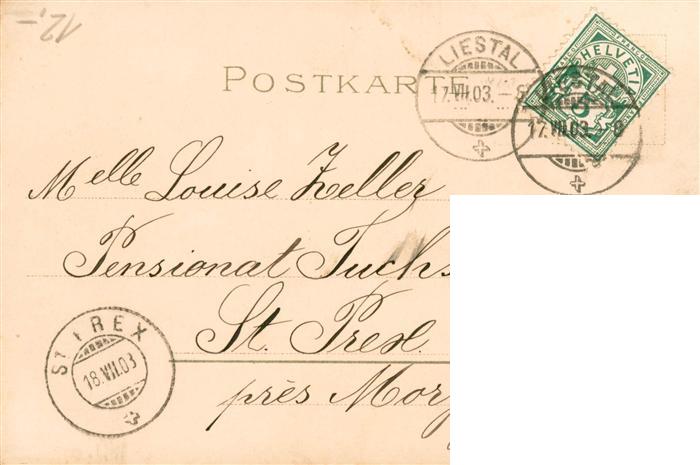 12.-
POSTKARTE
LIESTAL
17.VII.03.-8
HELVETIA
5
17.VII.03.-8
Melle Louise Zeller
Pensionat Fuchs
St. Prex.
près
ST PREX
18.VII.03